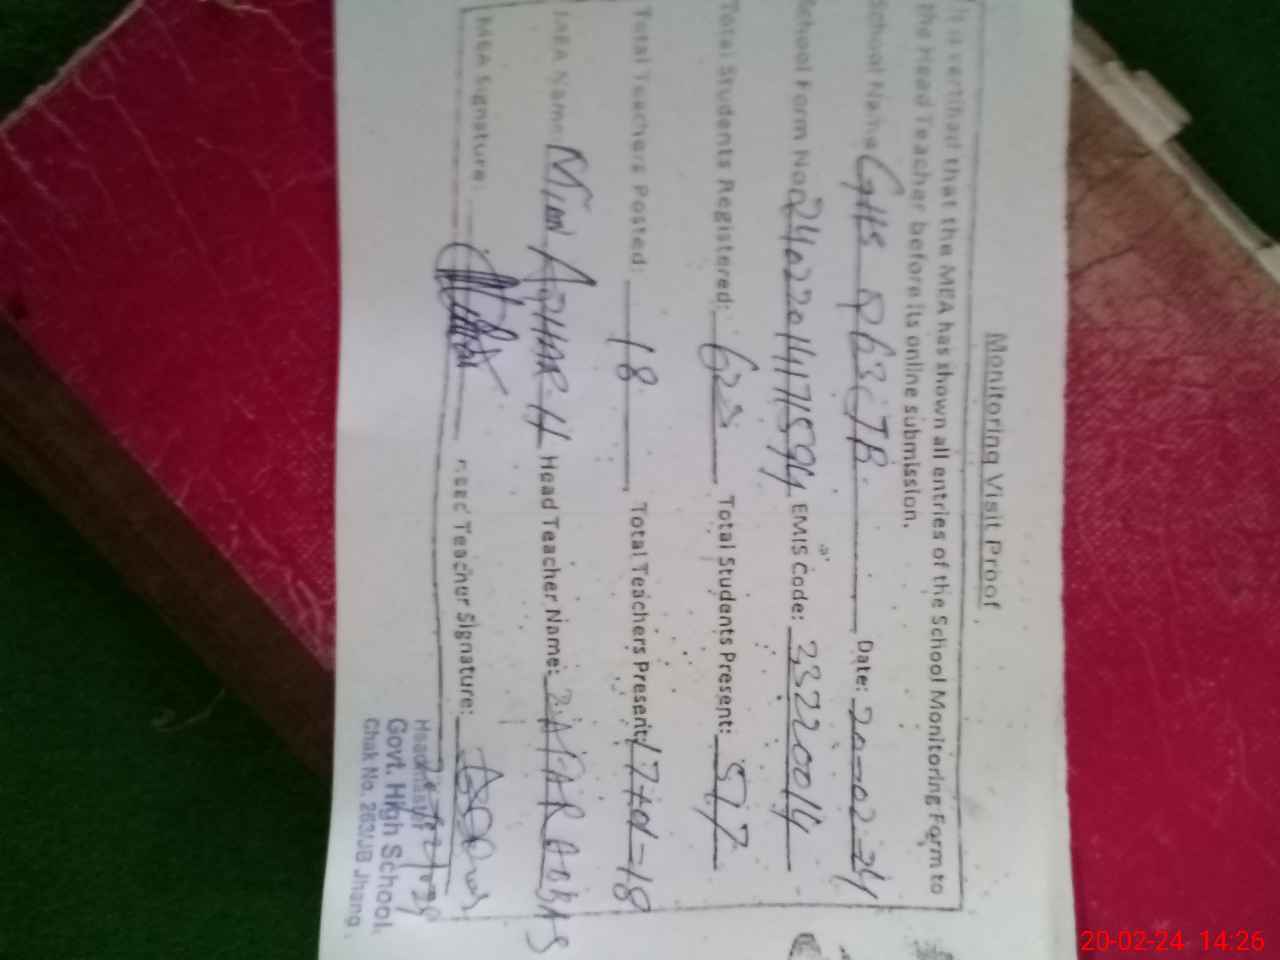 Monitoring Visit Proof
It is certified that the MEA has shown all entries of the School Monitoring Form to
the Head Teacher before its online submission.
School Name GHS 263/JB Date: 20-02-24
School Form No: EMIS Code: 33220014
Total Students Registered: Total Students Present: 517
Total Teachers Posted: 18 Total Teachers Present: 17+d=18
MEA Name: Mian AZHAR H Head Teacher Name: ZAFAR ABBAS
MEA Signature: Head Teacher Signature:
Headmaster
Govt. High School
Chak No. 263/JB Jhang.
20-02-24 14:26